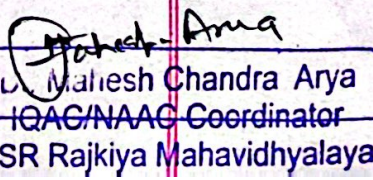 Mahesh Arya
Mahesh Chandra Arya
IQAC/NAAC Coordinator
SR Rajkiya Mahavidhyalaya